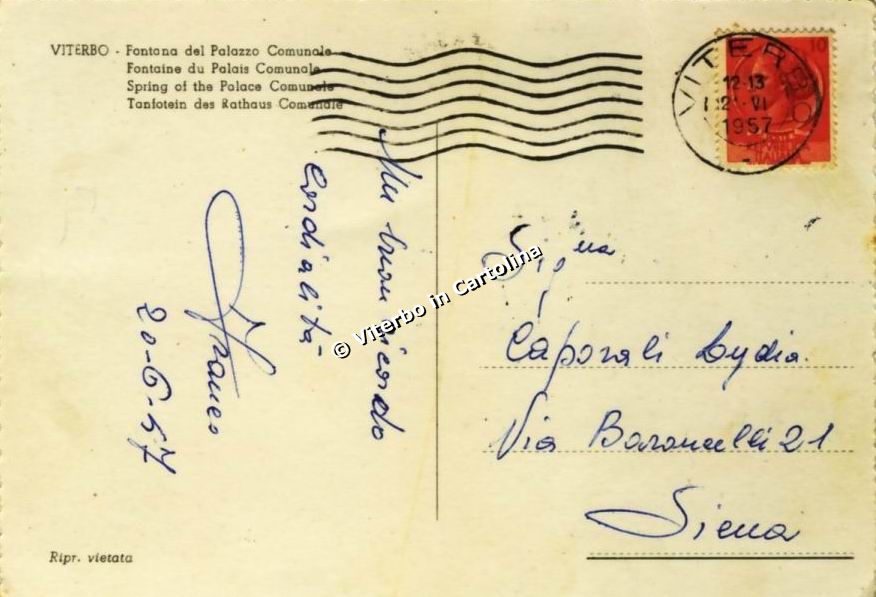 VITERBO - Fontana del Palazzo Comunale
Fontaine du Palais Comunale
Spring of the Palace Comunale
Tanfotein des Rathaus Comunale
Un buon ricordo
Cordialità
Franco
20-6-57
Sig.na
Caporali Lydia
Via Baroncelli 21
Siena
VITERBO
12-13
21 VI
1957
10
Ripr. vietata
© Viterbo in Cartolina